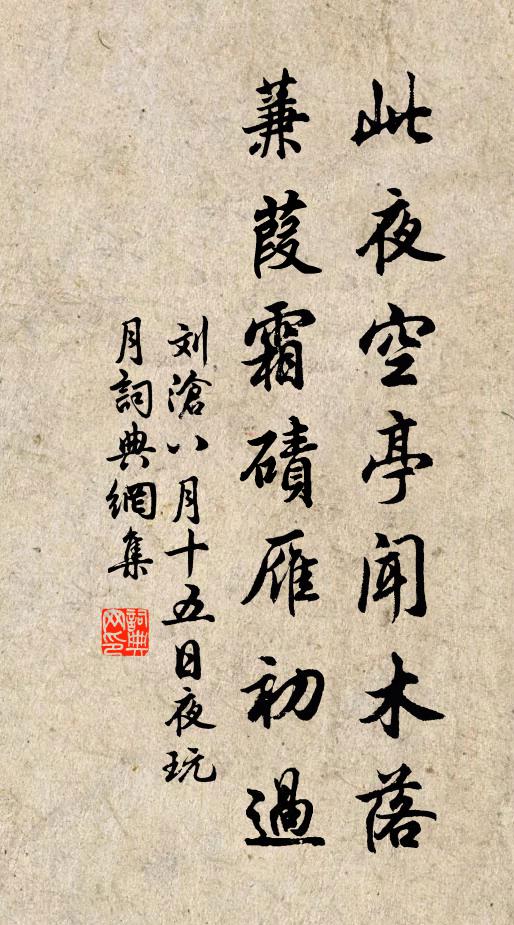 此夜空亭闻木落
蒹葭霜碛雁初過
刘滄八月十五日夜玩
月詞典網集
詞典
网印